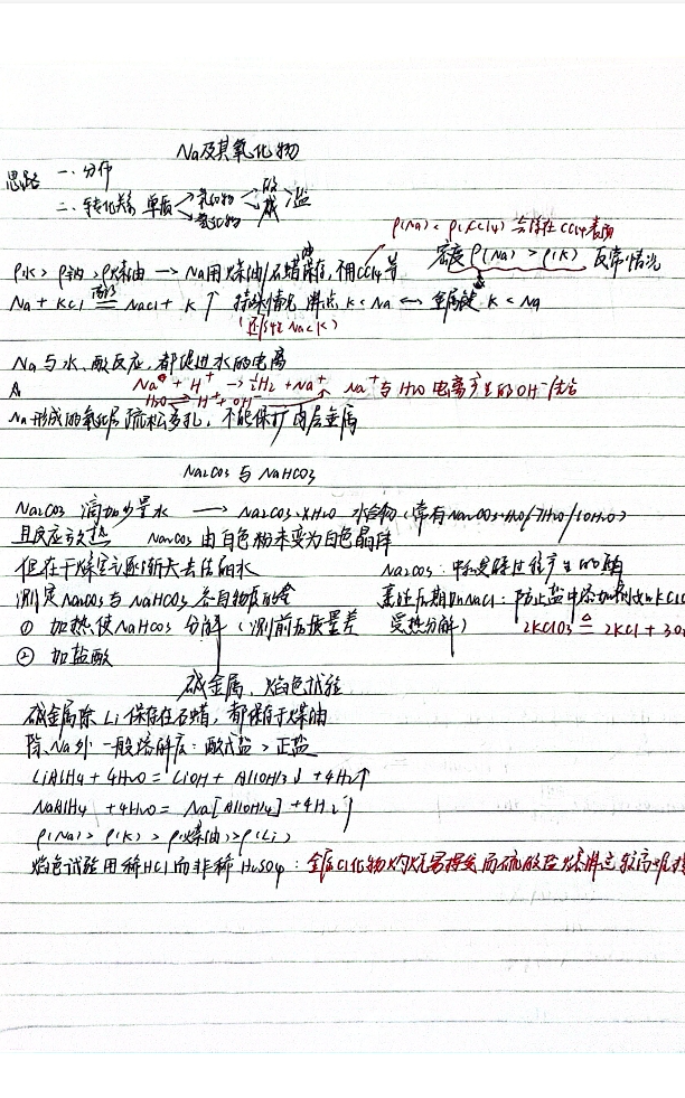 Na及其氧化物
思路 一、分布
二、转化关系 单质 氧化物 酸 盐
氢化物 碱
ρ(Na) < ρ(CCl4) 会浮在CCl4表面
密度 ρ(Na) > ρ(K) 反常情况
ρ水 > ρ钠 > ρ煤油 → Na用煤油/石蜡油保存, 不用CCl4等
Na + KCl 高温 NaCl + K↑ 特殊情况 沸点 K < Na ← 金属键 K < Na
Na与水、酸反应, 都促进水的电离
Na + H+ → ½H2 + Na+ Na+与H2O电离产生的OH-结合
H2O ⇌ H+ + OH-
Na形成的氧化层疏松多孔, 不能保护内层金属
Na2CO3 与 NaHCO3
Na2CO3 滴加少量水 → Na2CO3·xH2O 水合物 (常有Na2CO3·H2O/7H2O/10H2O)
且反应放热 Na2CO3 由白色粉末变为白色晶体
但在干燥空气逐渐失去结晶水
Na2CO3: 中和发酵过程产生的酸
测定Na2CO3与NaHCO3各自物质的
蒸 后期加NaCl: 防止盐中添加剂如KClO
① 加热使NaHCO3 分解 (测前后质量差
受热分解) 2KClO3 △= 2KCl + 3O
② 加盐酸
碱金属、焰色试验
碱金属除 Li 保存在石蜡, 都保存于煤油
除Na外 一般溶解度: 酸式盐 > 正盐
LiAlH4 + 4H2O = LiOH + Al(OH)3↓ + 4H2↑
NaAlH4 + 4H2O = Na[Al(OH)4] + 4H2↑
ρ(Na) > ρ(K) > ρ(煤油) > ρ(Li)
焰色试验用稀HCl而非稀H2SO4: 金属Cl化物灼烧易挥发而硫酸盐熔沸点较高难挥